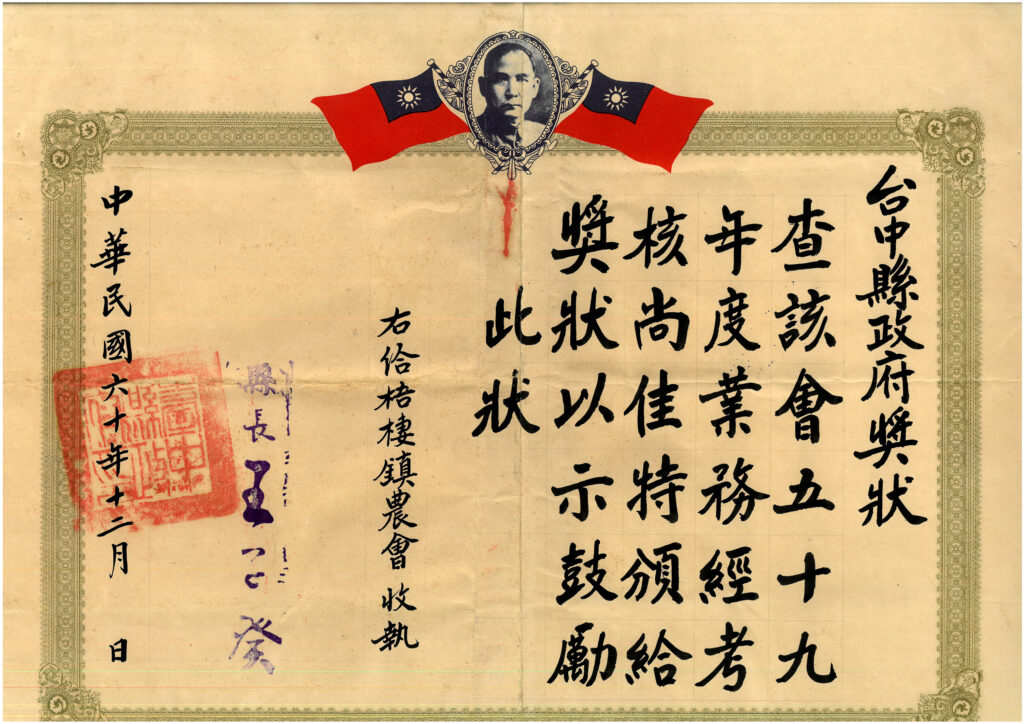 台中縣政府獎狀
查該會五十九
年度業務經考
核尚佳特頒給
獎狀以示鼓勵
此狀
右給梧棲鎮農會收執
縣長王子癸
中華民國六十年十二月 日